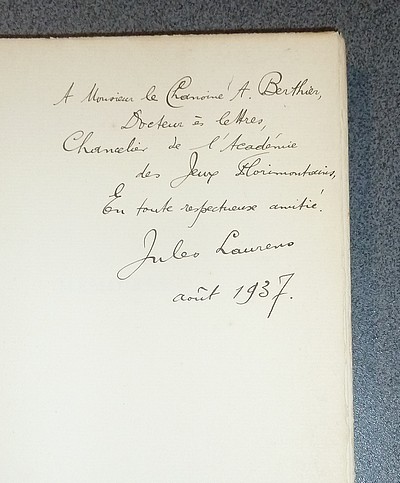 A Monsieur le Chanoine A. Berthier,
Docteur ès lettres,
Chancelier de l'Académie
des Jeux Florimontains,
En toute respectueuse amitié.
Jules Laurens
août 1937.